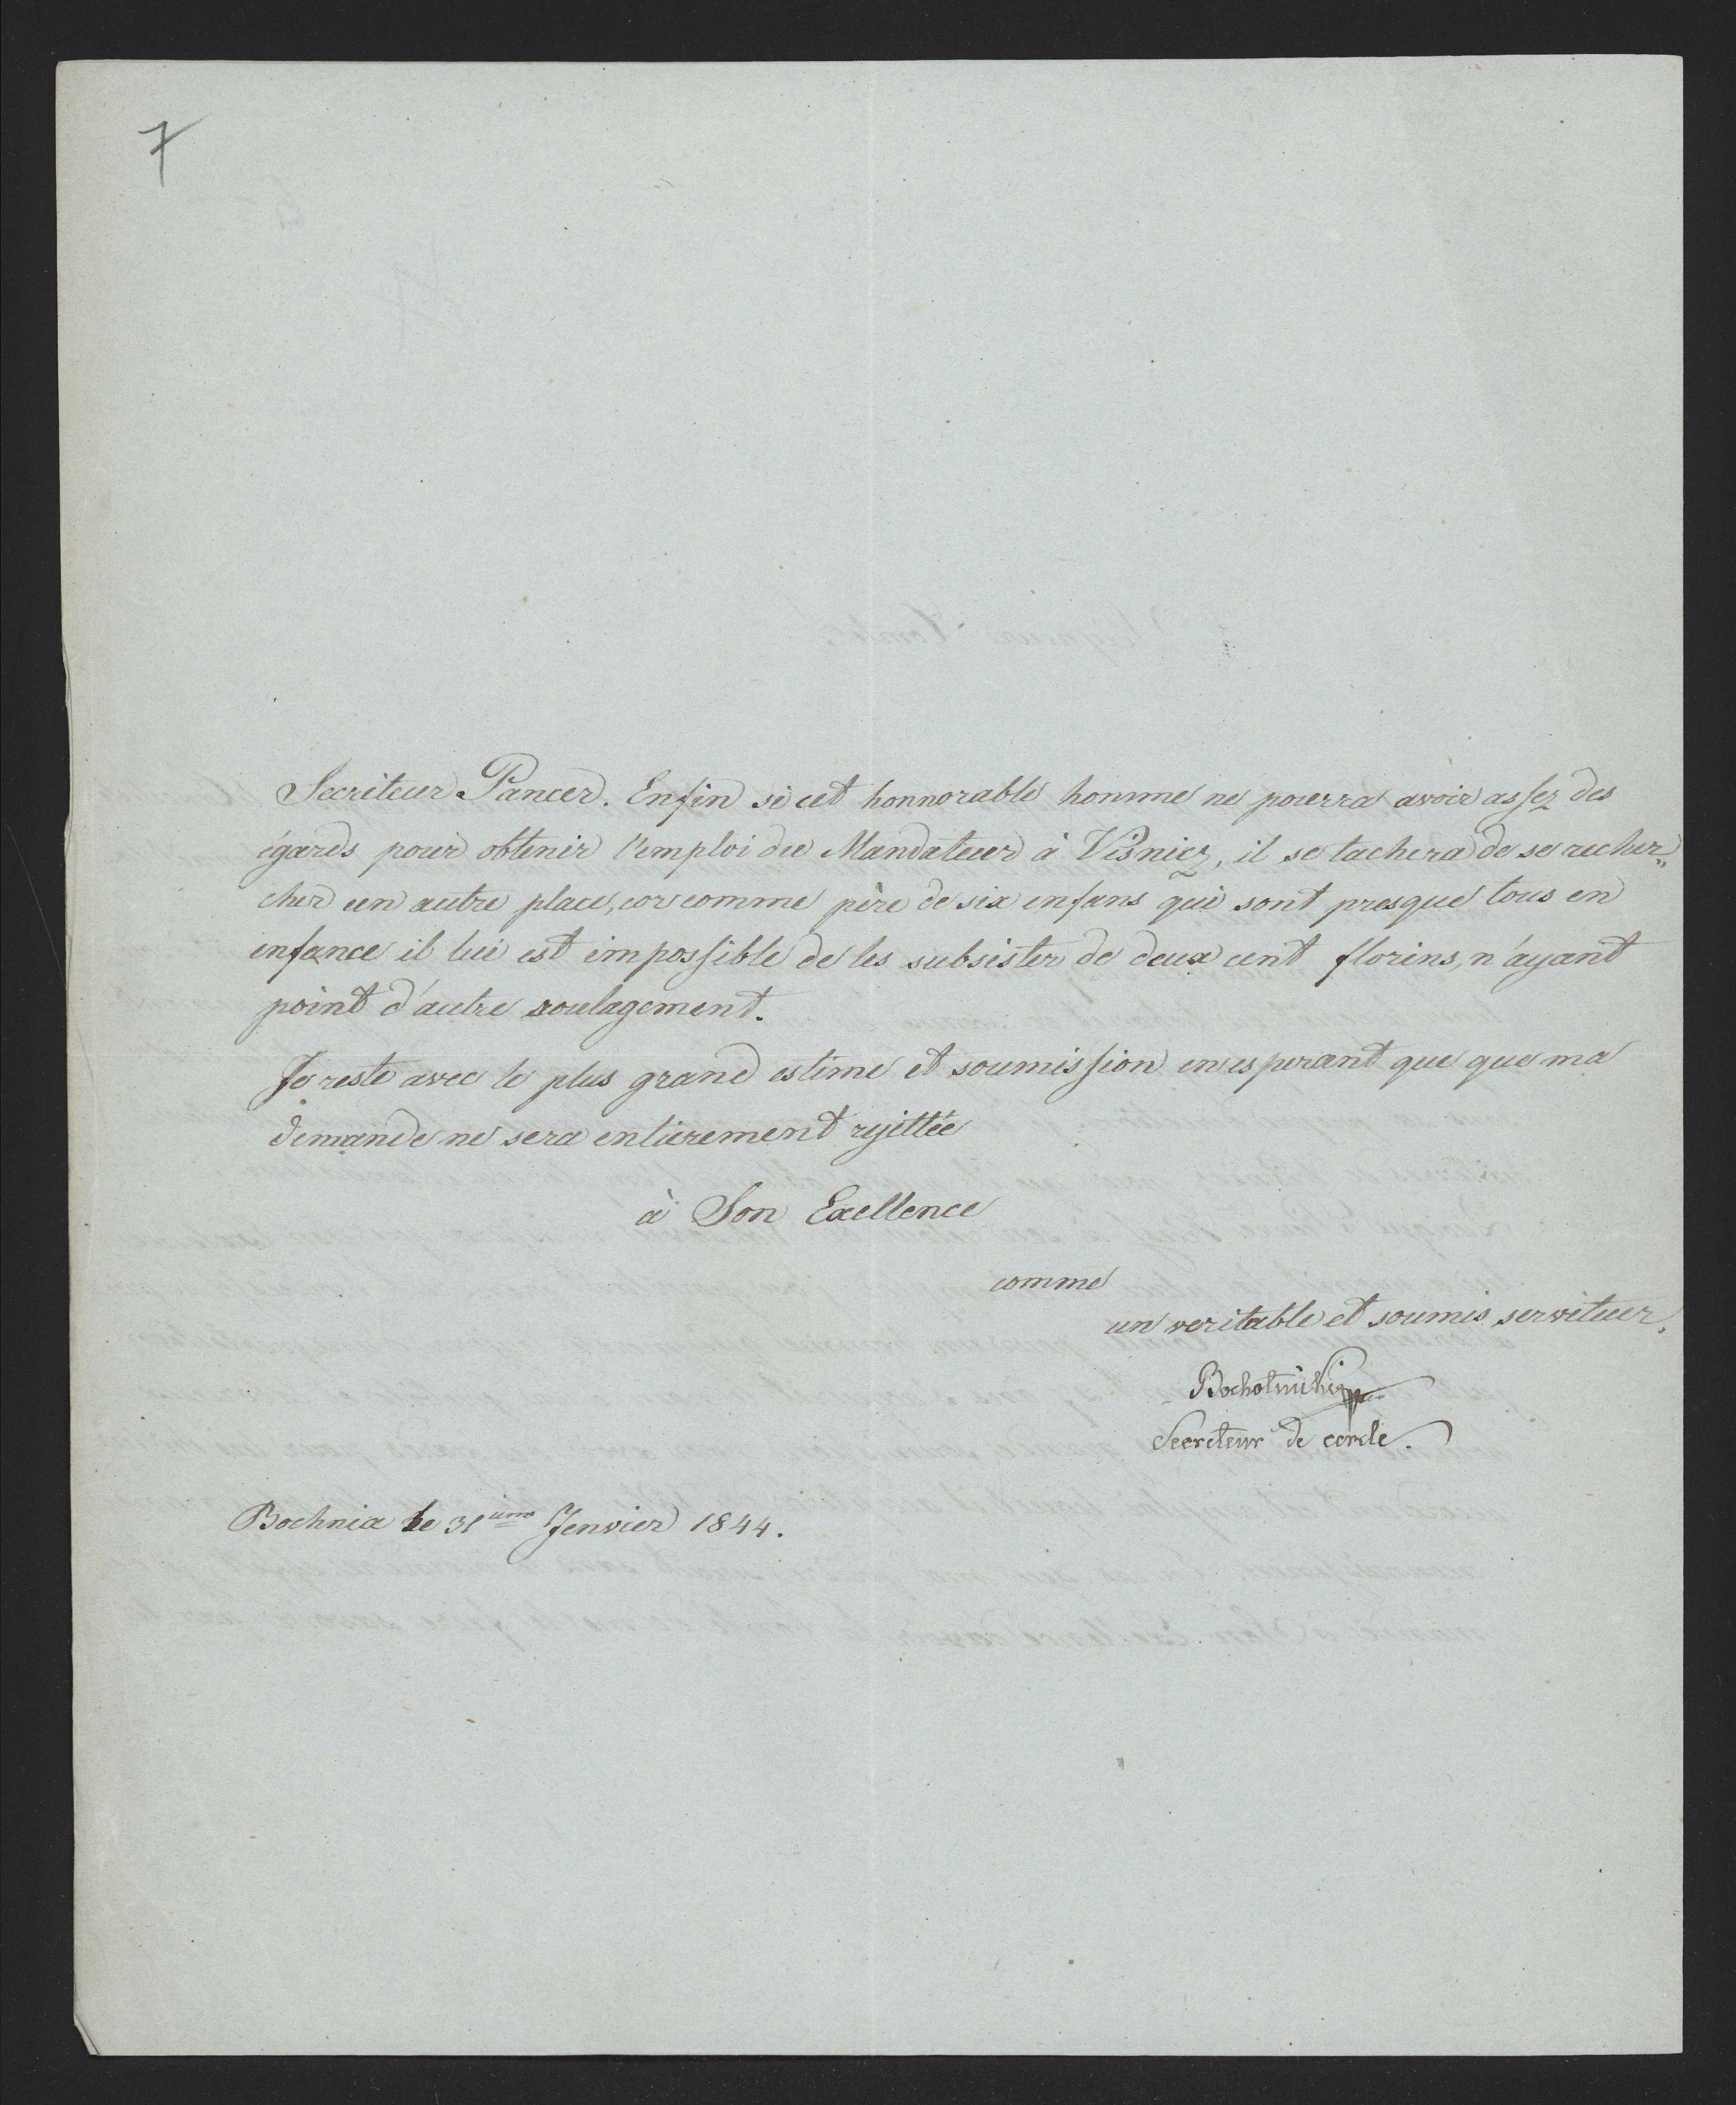 7
Secriteur Pancer. Enfin si cet honnorable homme ne pourra avoir assez des
égards pour obtenir l'emploi du Mandateur à Viśnicz, il se tachera de se recher„
cher un autre place, cor comme père de six enfans qui sont presque tous en
enfance il lui est impossible de les subsister de deux cent florins, n'ayant
point d'autre soulagement.
Je reste avec le plus grand estime et soumission en esperant que que ma
demande ne sera entierement rejettée
à Son Exellence
comme
un veritable et soumis serviteur.
Secreteur de cercle.
Bochnia le 31ième Jenvier 1844.